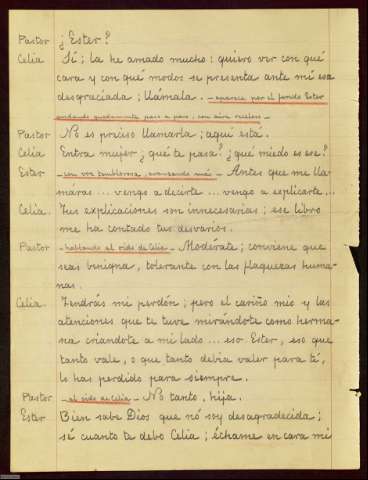 Pastor ¿Ester?
Celia Sí; la he amado mucho: quiero ver con qué
cara y con qué modos se presenta ante mí esa
desgraciada; llámala. - aparece por el fondo Ester
andando quedamente paso a paso, con aire receloso -
Pastor No es preciso llamarla; aquí está.
Celia Entra mujer ¿qué te pasa? ¿qué miedo es ese?
Ester - con voz temblorosa, avanzando más - Antes que me lla-
máras... vengo a decirte... vengo a explicarte...
Celia. Tus explicaciones son innecesarias; ese libro
me ha contado tus desvarios.
Pastor - hablando al oido de Celia - Modérate; conviene que
seas benigna, tolerante con las flaquezas huma-
nas.
Celia. Tendrás mi perdón; pero el cariño mio y las
atenciones que te tuve mirándote como herma-
na criandote a mi lado... eso Ester, eso que
tanto vale, o que tanto debia valer para tí,
lo has perdido para siempre.
Pastor - al oido de Celia - No tanto, hija.
Ester Bien sabe Dios que nó soy desagradecida;
sé cuanto te debo Celia; échame en cara mi